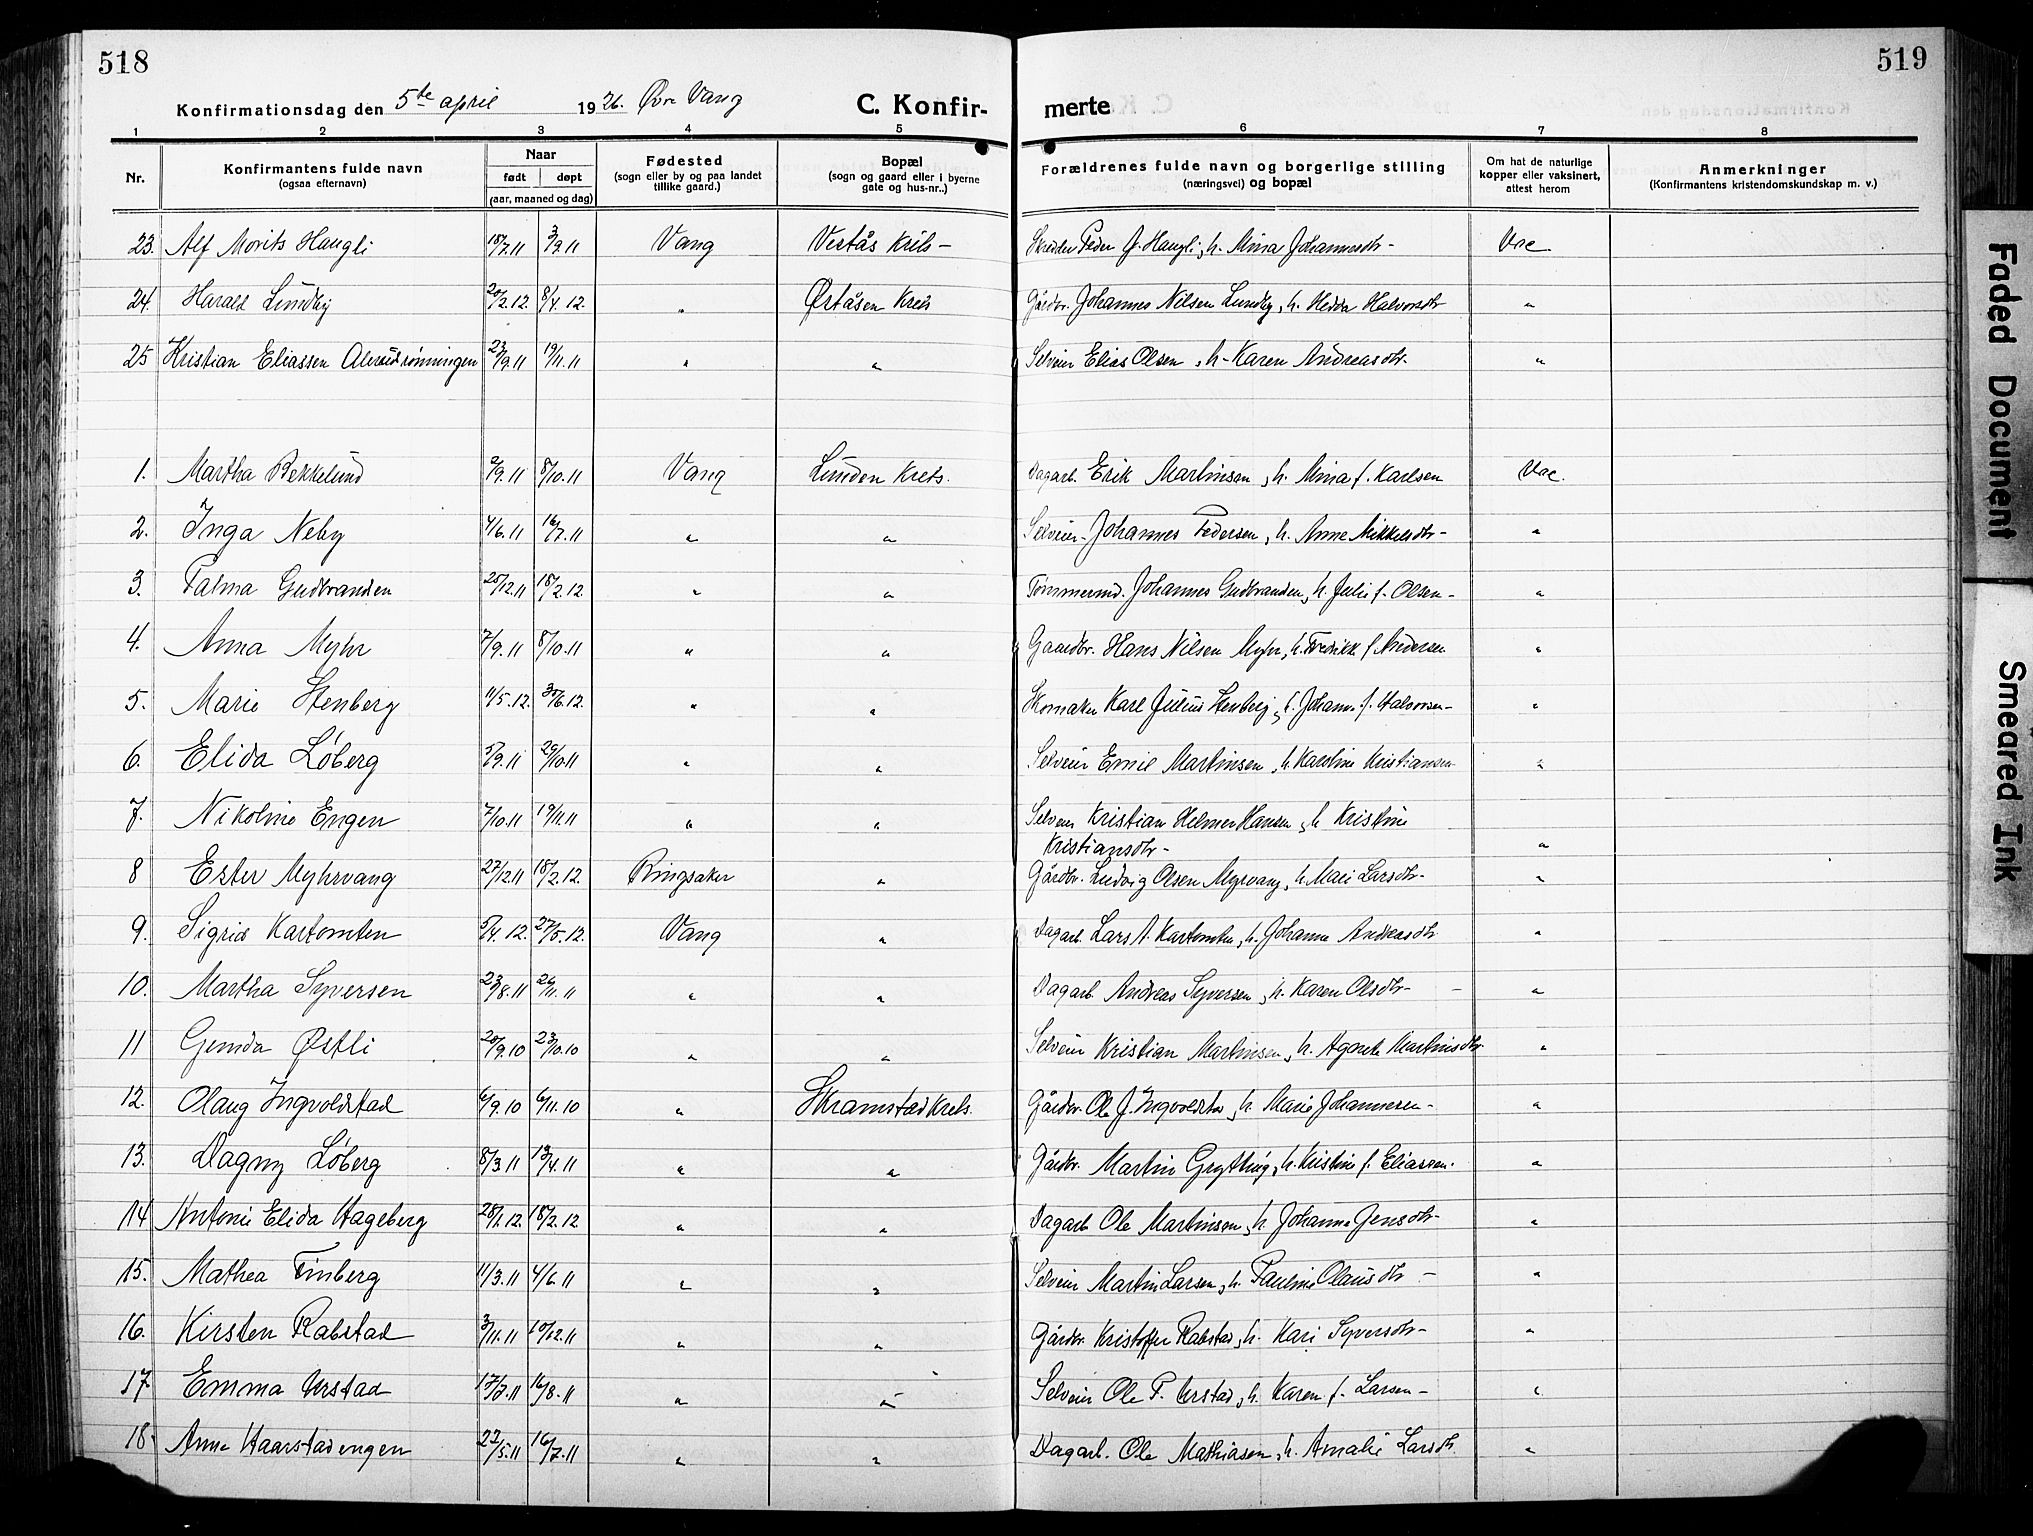 518
519
Konfirmationsdag den 5te april 1926. Øvre Vang
C. Konfir-
merte
1 2 3 4 5 6 7 8
Nr.
Konfirmantens fulde navn
(ogsaa efternavn)
Naar
født døpt
(aar, maaned og dag)
Fødested
(sogn eller by og paa landet
tillike gaard.)
Bopæl
(sogn og gaard eller i byerne
gate og hus-nr..)
Forældrenes fulde navn og borgerlige stilling
(næringsvei) og bopæl
Om hat de naturlige
kopper eller vaksinert,
attest herom
Anmerkninger
(Konfirmantens kristendomskundskap m. v.)
23. Alf Morits Haugli 18/7.11 3/9.11 Vang Vestås Krets - Peder J. Haugli, h. Mina Johannesdtr - Vac.
24. Harald Lundby 20/2.12. 8/4.12. " Øståsen Krets Gårdbr. Johannes Nilsen Lundby, h. Hedda Halvorsdtr "
25 Kristian Eliassen 23/9.11 19/11.11 " " Selveier Elias Olsen, h. Karen Andreasdtr. "
1. Martha Bekkelund 2/9.11 8/10.11 Vang Lunden Krets. Dagarb. Erik Martinsen, h. Mina f. Karlsen Vac.
2. Inga Neby 4/6.11 16/7.11 " " Selveier Johannes Pedersen, h. Anne Mikkelsdtr - "
3. Palma Gudbrandsen 25/12.11 18/2.12. " " Tømmermd. Johannes Gudbrandsen, h. Julie f. Olsen - "
4. Anna Myhr 7/9.11 8/10.11 " " Gaardbr. Hans Nilsen Myhr, h. Fredrikk f. Andersen "
5. Marie Stenberg 11/5.12. 30/6.12. " " Skomaker Karl Julius Stenberg, h. Johanne f. Halvorsen - "
6. Elida Løberg 5/9.11 29/10.11 " " Selveier Emil Martinsen, h. Karoline Kristiansen "
7. Nikoline Engen 7/10.11 19/11.11 " " Selveier Kristian Helmer Hansen, h. Kristine
Kristiansdtr - "
8 Ester Myhrvang 27/12.11 18/2.12. Ringsaker " Gårdbr. Ludvig Olsen Myrvang, h. Mari Larsdtr - "
9. Sigrid Kartomten 5/4.12. 27/5.12. Vang " Dagarb. Lars A. Kartomten, h. Johanne Andreasdtr "
10. Martha Syversen 23/8.11 26/11.11 " " Dagarb. Andreas Syversen, h. Karen Olsdtr - "
11 Gunda Østli 20/9.10 23/10.10 " " Selveier Kristian Martinsen, h. Agnete Martinsdtr "
12. Olaug Ingvoldstad 6/9.10 6/11.10 " Skramstad Krets. Gårdbr. Ole J. Ingvoldstad, h. Marie Johannesen - "
13. Dagny Løberg 8/3.11 13/4.11 " " Gårdbr. Martin Grytting, h. Kristine f. Eliassen. "
14 Antonie Elida Hageberg 28/1.12. 18/2.12 " " Dagarb Ole Martinsen, h. Johanne Jensdtr - "
15. Mathea Finberg 11/3.11 4/6.11 " " Selveier Martin Larsen, h. Pauline Olausdtr - "
16. Kirsten Rabstad 3/11.11 10/12.11 " " Gårdbr. Kristoffer Rabstad, h. Kari Syversdtr - "
17. Emma Urstad 17/7.11 16/8.11 " " Selveier Ole P. Urstad, h. Karen f. Larsen - "
18 Anne Haarstadengen 22/5.11 16/7.11 " " Dagarb. Ole Mathiasen, h. Amalie Larsdtr. "
Faded Document
Smeared Ink